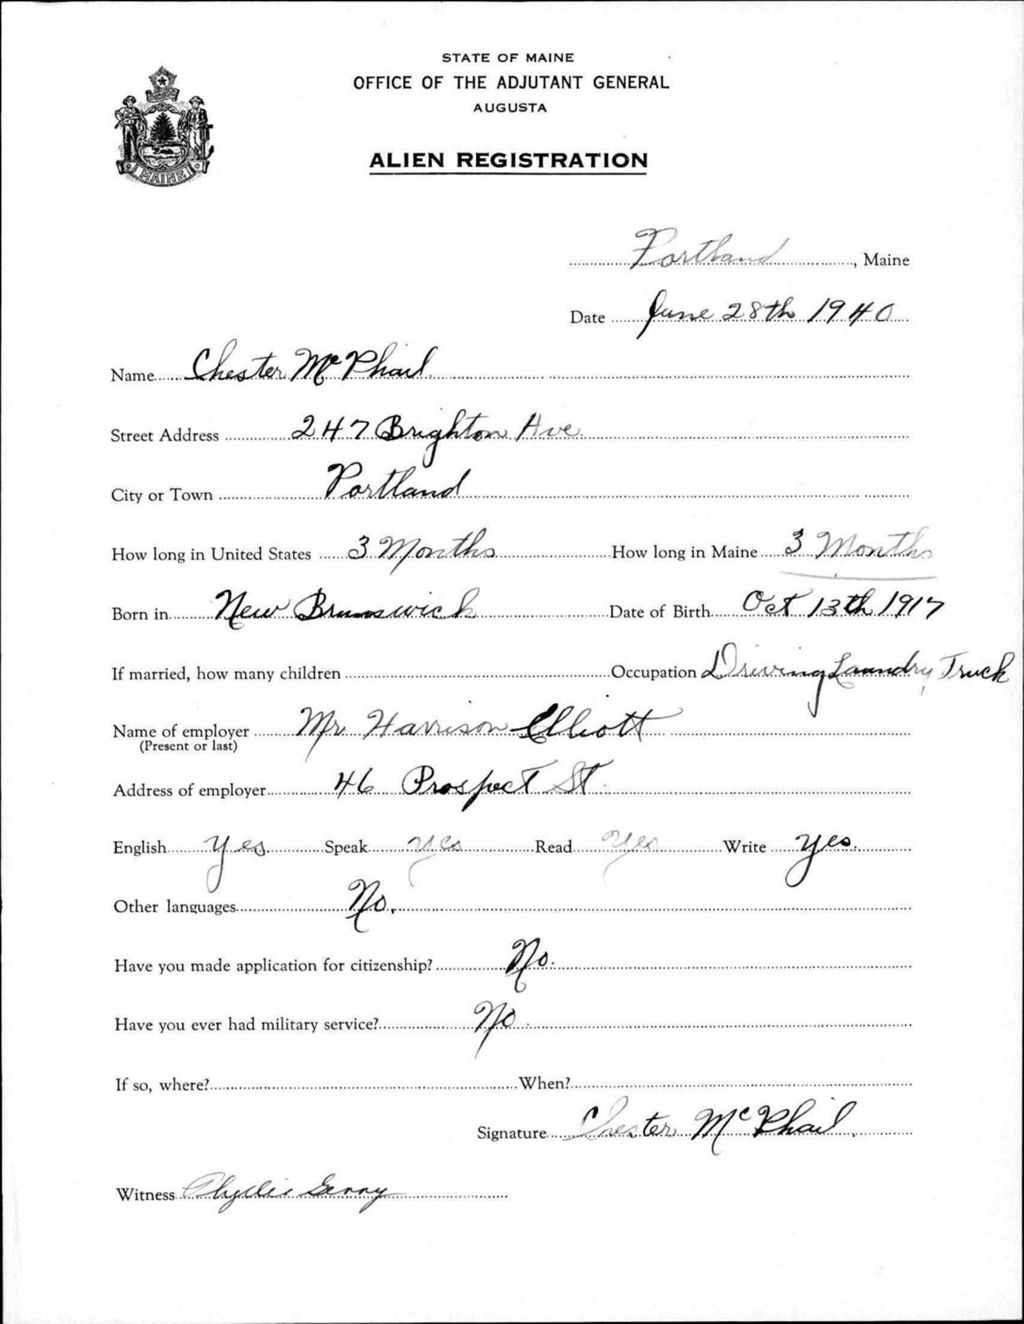 STATE OF MAINE
OFFICE OF THE ADJUTANT GENERAL
AUGUSTA
ALIEN REGISTRATION
MAINE
Portland, Maine
Date June 28th 1940
Name Chester McPhail
Street Address 247 Brighton Ave.
City or Town Portland
How long in United States 3 Months How long in Maine 3 Months
Born in New Brunswick Date of Birth Oct 13th 1917
If married, how many children Occupation Driving Laundry Truck
Name of employer Mr Harrison Elliott
(Present or last)
Address of employer 46 Prospect St.
English Yes Speak Yes Read Yes Write Yes.
Other languages No.
Have you made application for citizenship? No.
Have you ever had military service? No.
If so, where? When?
Signature Chester McPhail.
Witness